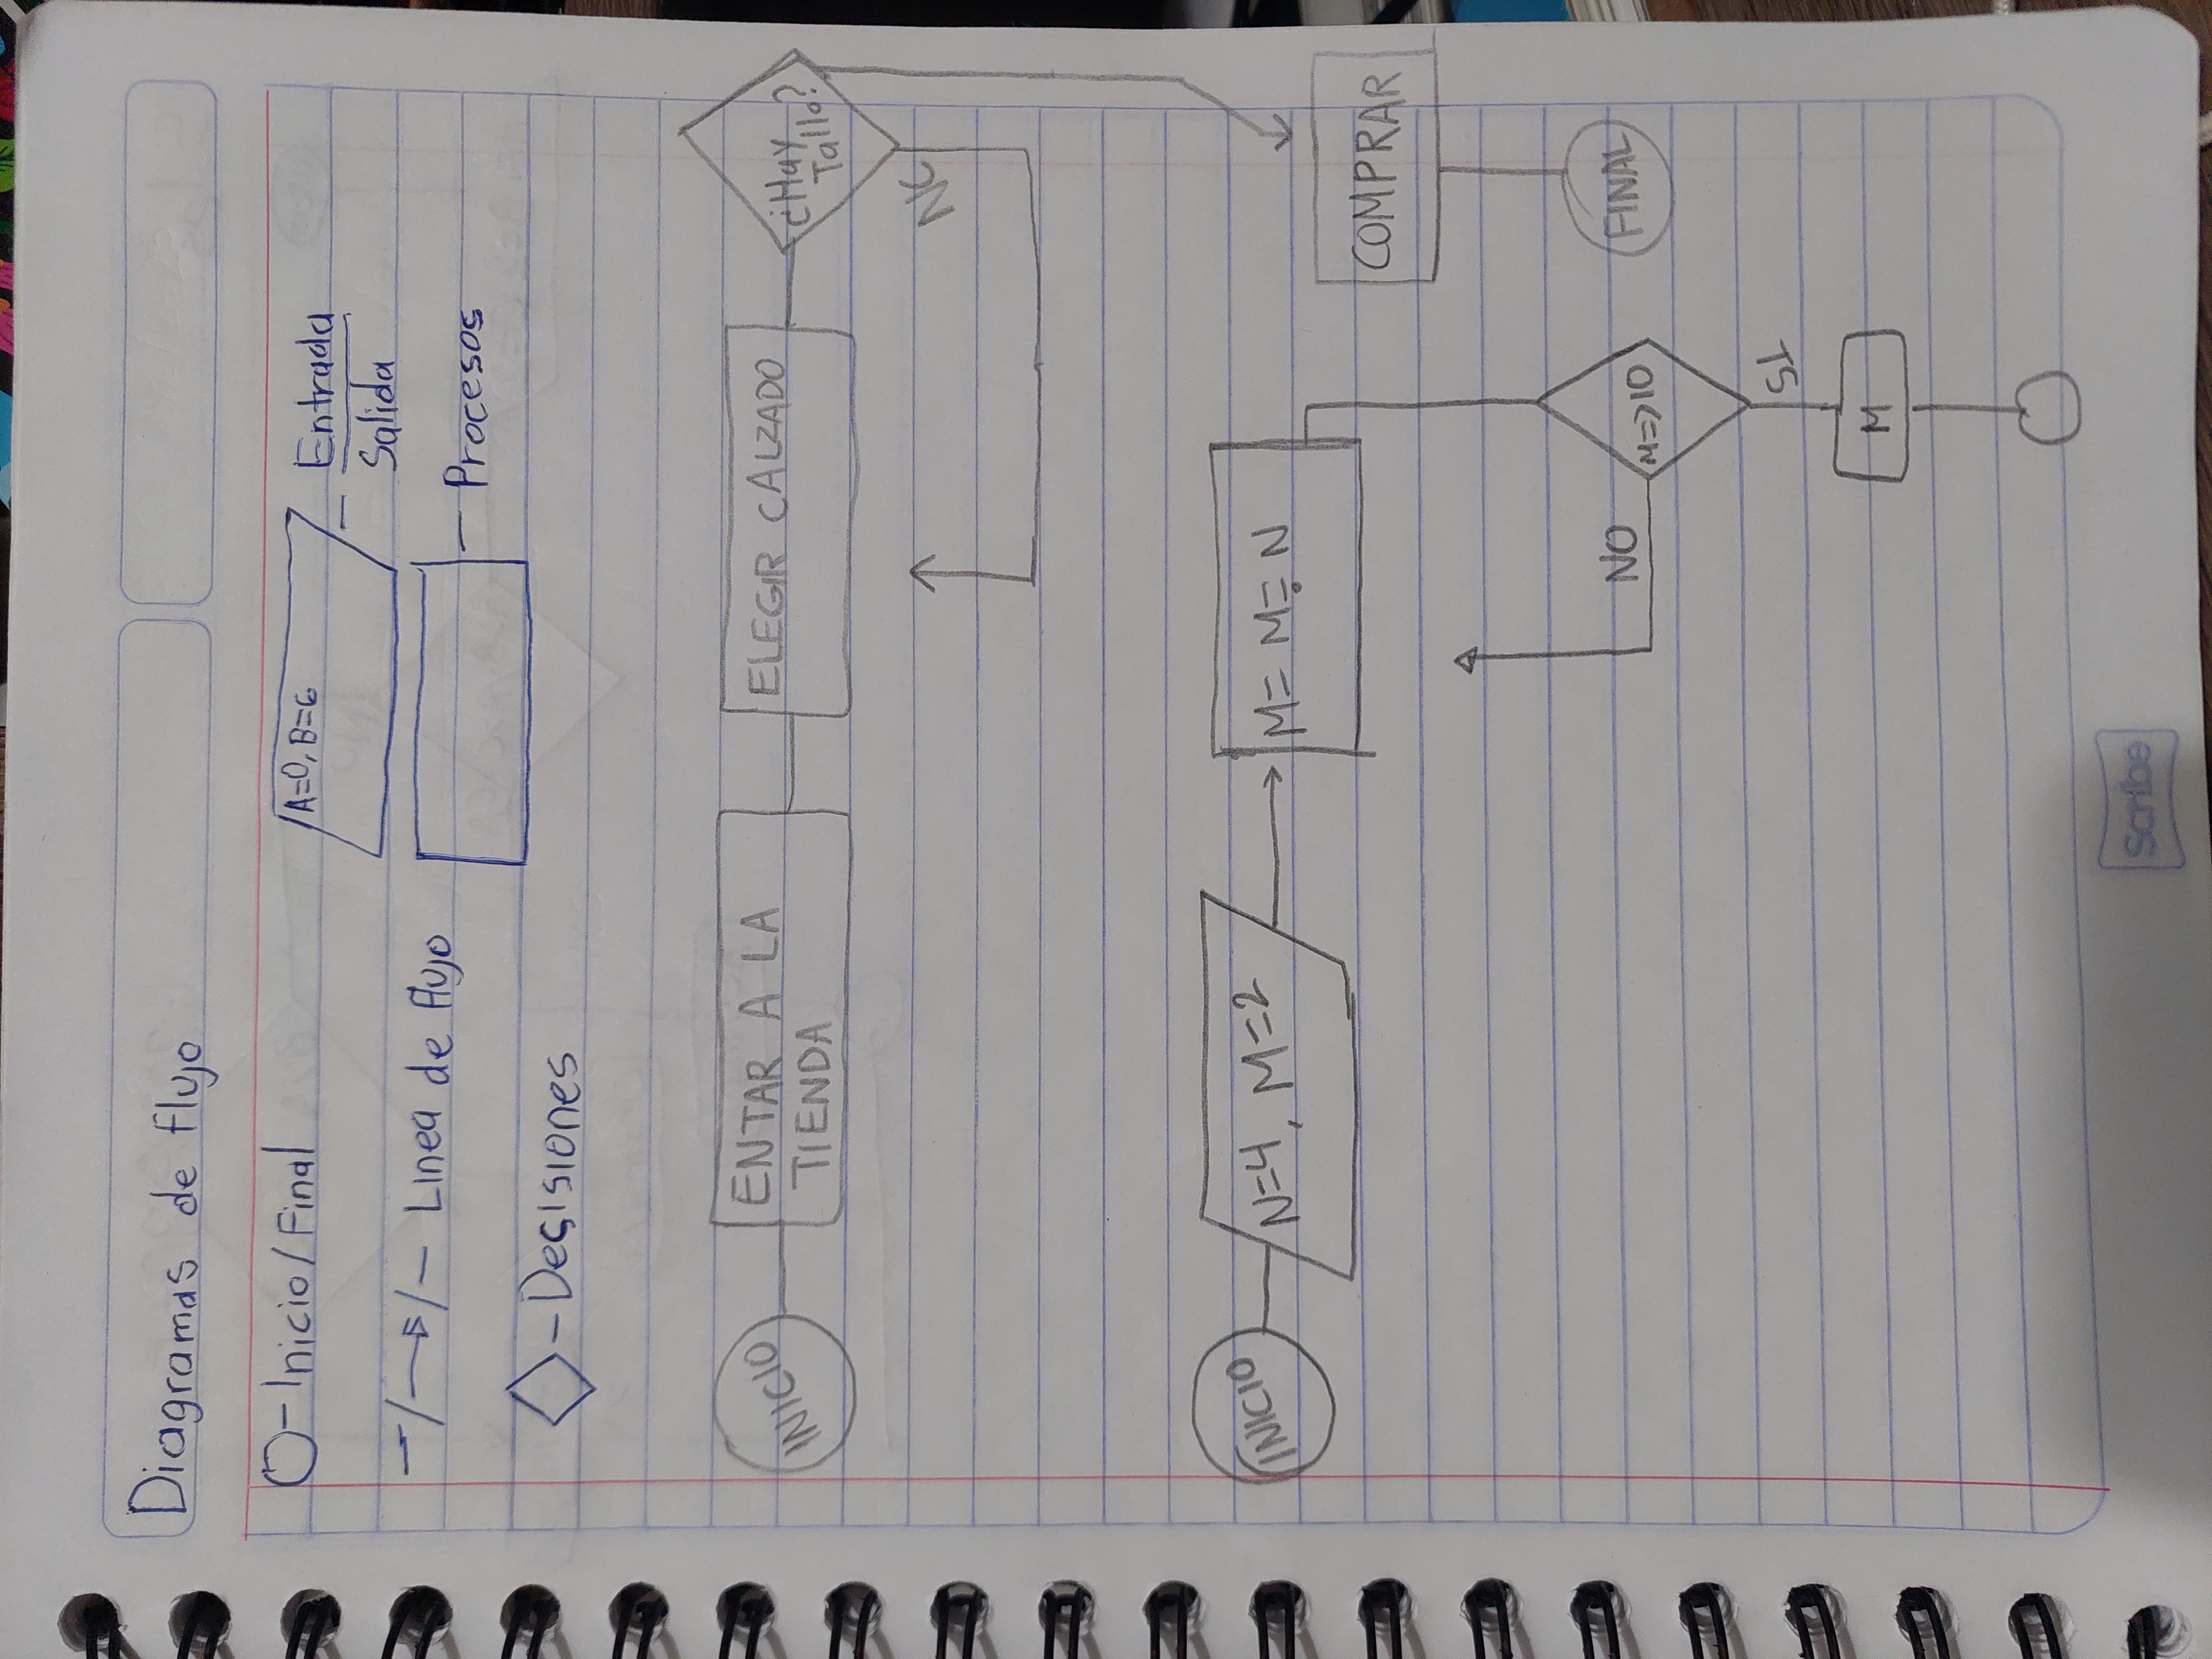 Diagramas de flujo
O-Inicio/Final
A=0, B=6
- Entrada
Salida
- Linea de flujo
- Procesos
-Decisiones
INICIO
ENTAR A LA
TIENDA
ELEGIR CALZADO
¿Hay
Talla?
NO
COMPRAR
FINAL
INICIO
N=4, M=2
M= M= N
M=>10
NO
SI
M
Scribe